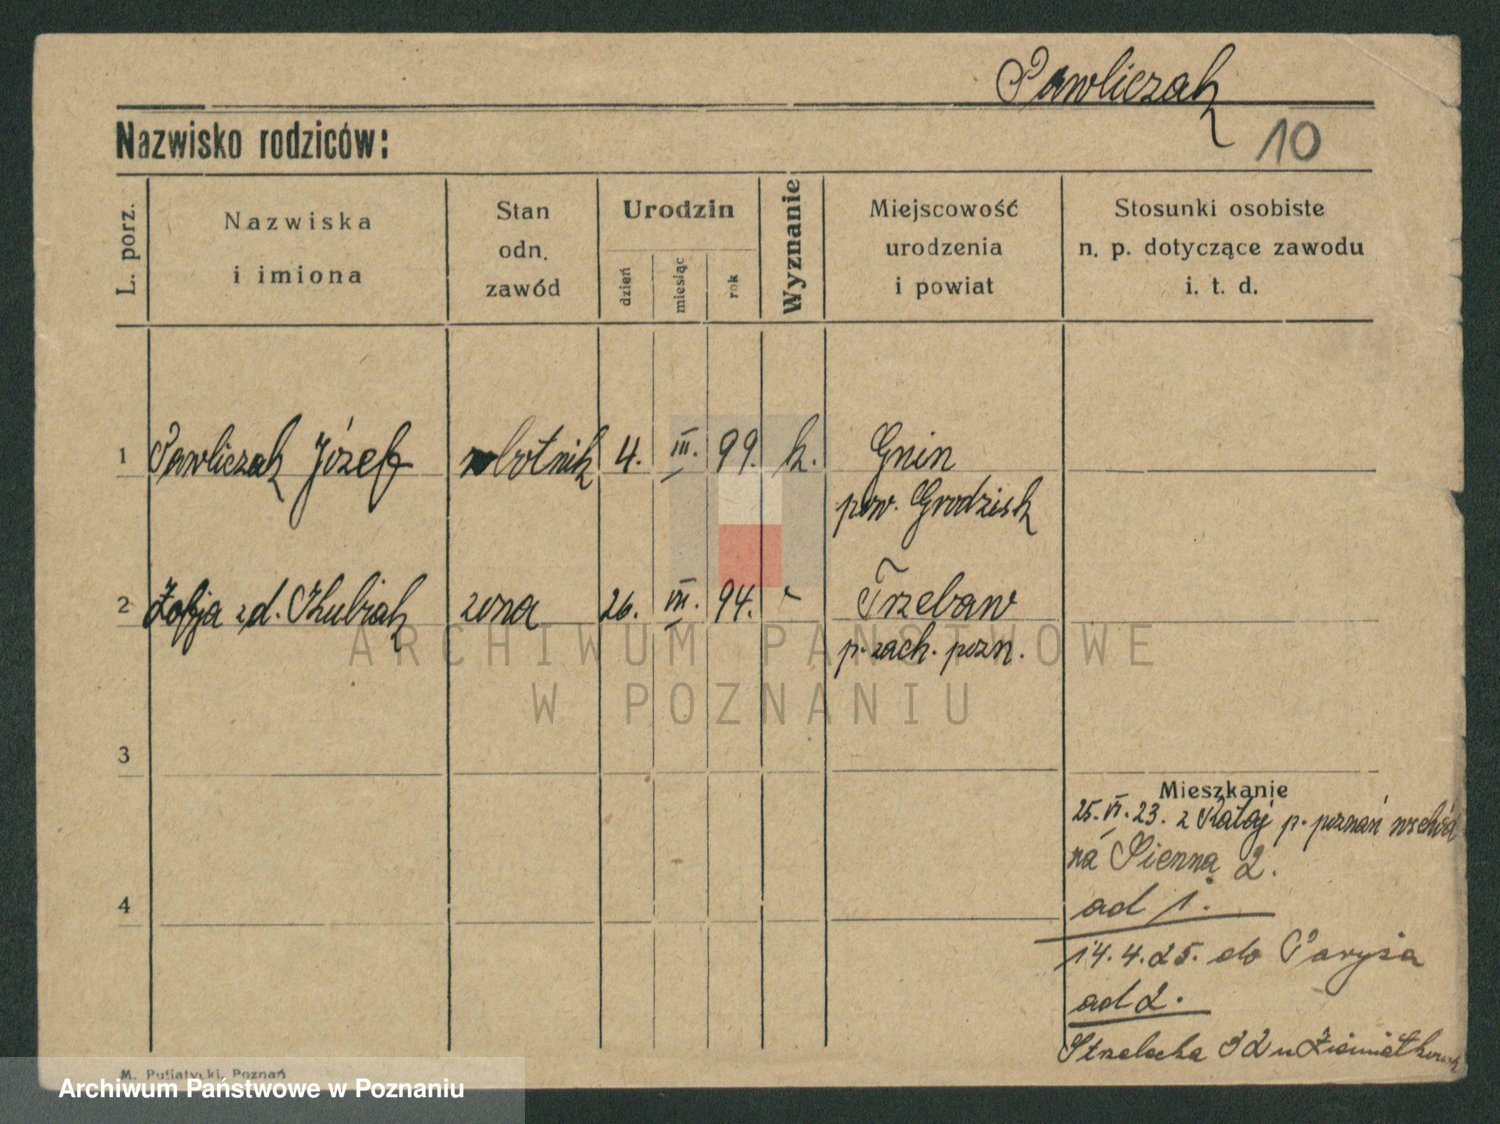 Pawliczak
Nazwisko rodziców:
10
L. porz.
Nazwiska
i imiona
Stan
odn.
zawód
Urodzin
dzień
miesiąc
rok
Wyznanie
Miejscowość
urodzenia
i powiat
Stosunki osobiste
n. p. dotyczące zawodu
i. t. d.
1 Pawliczak Józef robotnik 4. III. 99. k. Gnin
pow. Grodzisk
2 Zofja z d. Kubiak zona 26. VII. 94. Trzebaw
p. zach. pozn.
ARCHIWUM PAŃSTWOWE
W POZNANIU
3
4
Mieszkanie
25. VI. 23. z Rataj p. poznań wschód
na Sienna 2.
ad 1.
14.4.25. do Paryża
ad 2.
Strzelecka 32 u
M. Putiatycki, Poznań
Archiwum Państwowe w Poznaniu